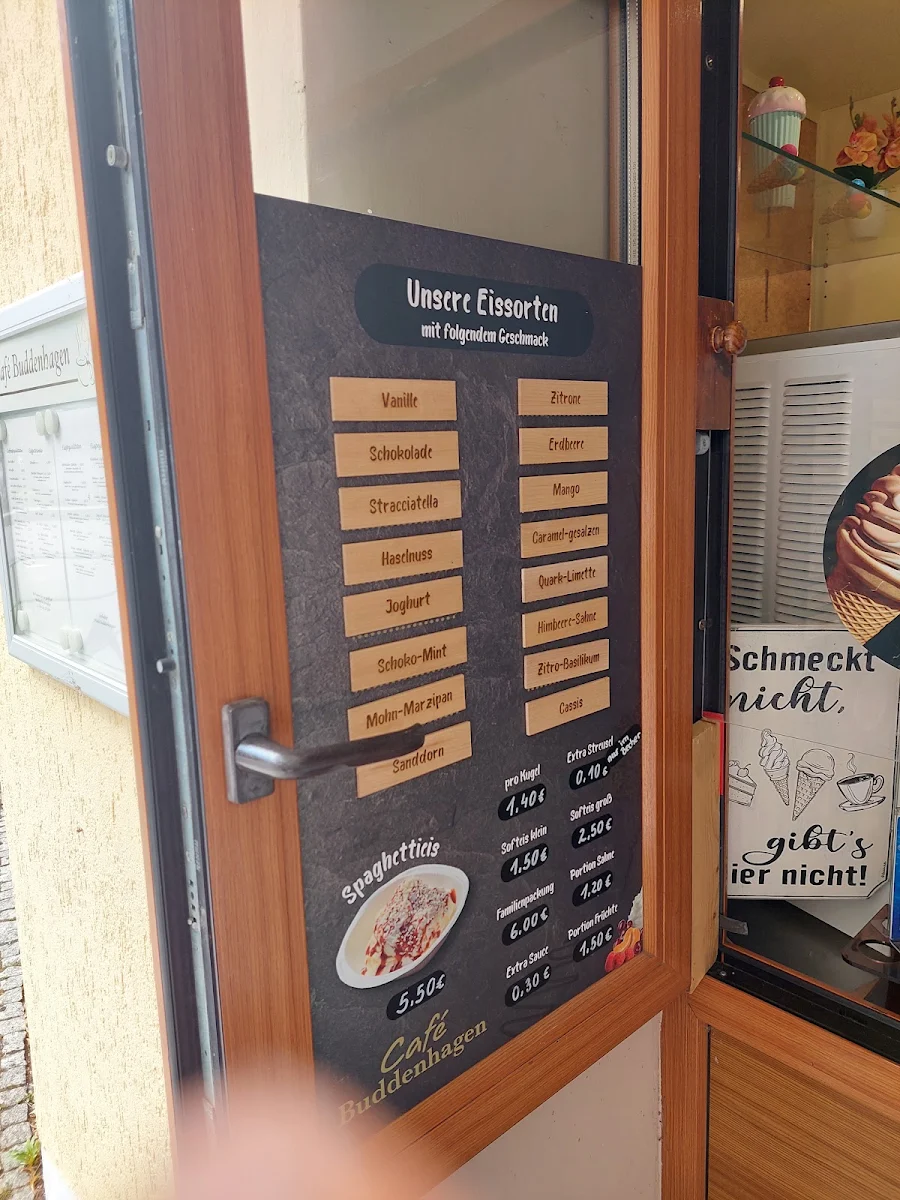 Café Buddenhagen
Unsere Eissorten
mit folgendem Geschmack
Vanille
Schokolade
Stracciatella
Haselnuss
Joghurt
Schoko-Mint
Mohn-Marzipan
Sanddorn
Zitrone
Erdbeere
Mango
Caramel-gesalzen
Quark-Limette
Himbeere-Sahne
Zitro-Basilikum
Cassis
pro Kugel
1,40€
Softeis klein
1,50€
Familienpackung
6.00€
Extra Sauce
0.30€
Extra Streusel
0,10€
und im Becher
Softeis groß
2,50€
Portion Sahne
1,20€
Portion Früchte
1,50€
Spaghettieis
5.50€
Café
Buddenhagen
Schmeckt
nicht,
gibt's
ier nicht!